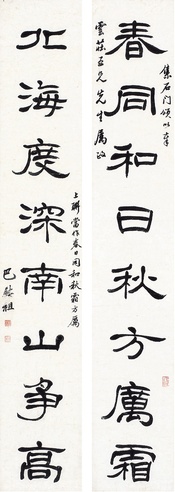 集石门頌以奉
春同和日秋方厲霜
雲莊五兄先生属政
北海度深南山爭高
上聯當作春日同和秋霜方厲
巴慰祖